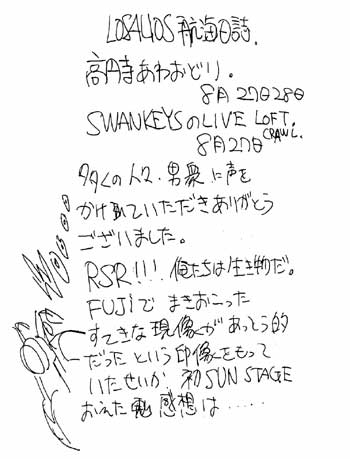 LOSALIOS 航海日誌.
高円寺あわおどり。
8月27日28日
SWANKEYSのLIVE LOFT.
CRAWL.
8月27日
多くの人々、男衆に声を
かけていただきありがとう
ございました。
RSR!!! 俺たちは生き物だ。
FUJIで まきおこった
すてきな現像があっとう的
だった という印像をもって
いたせいか 初SUN STAGE
おえた 感想は ・・・・・